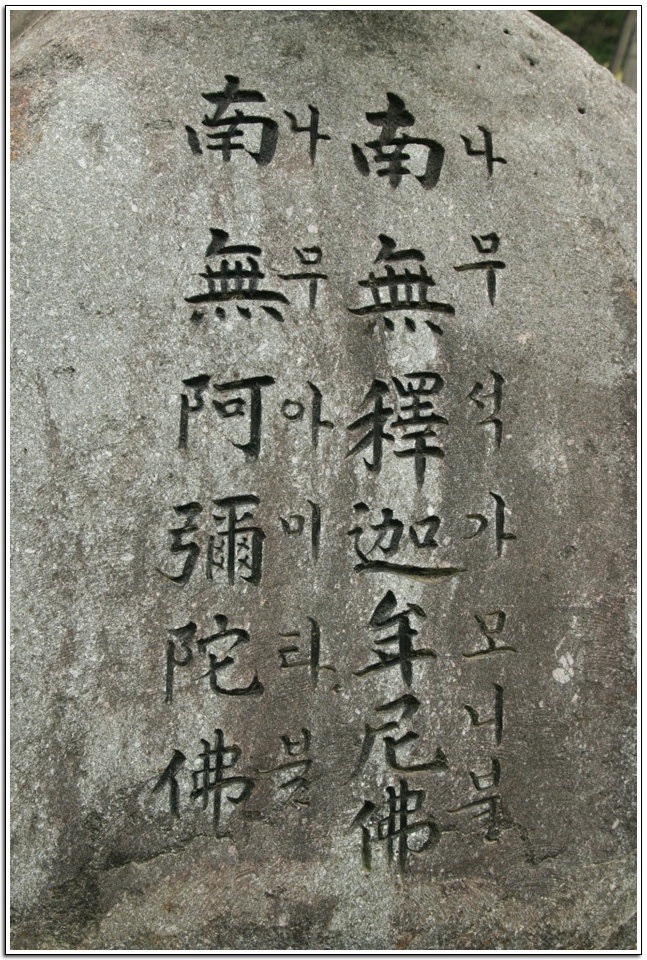 南無釋迦牟尼佛
나무석가모니불
南無阿彌陀佛
나무아미타불